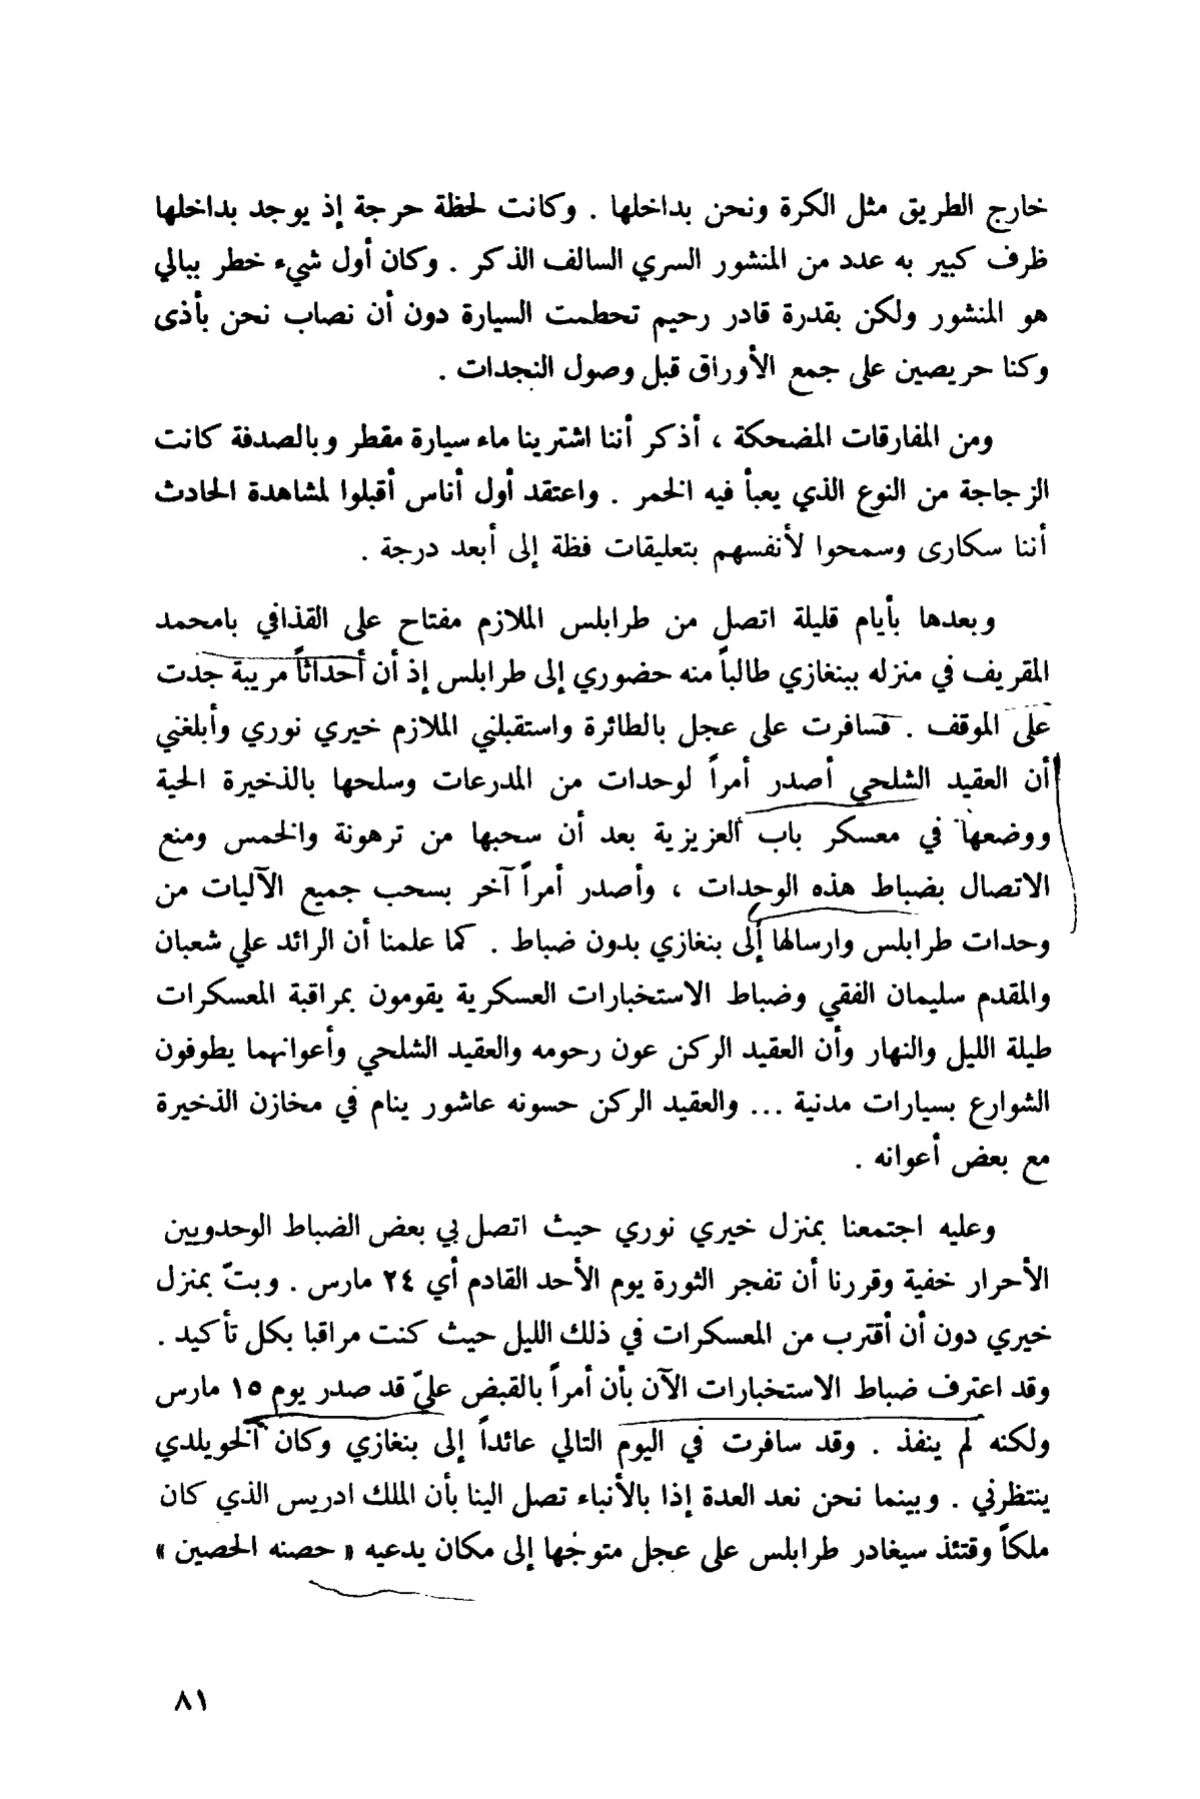 خارج الطريق مثل الكرة ونحن بداخلها . وكانت لحظة حرجة إذ يوجد بداخلها
ظرف كبير به عدد من المنشور السري السالف الذكر . وكان أول شيء خطر ببالي
هو المنشور ولكن بقدرة قادر رحيم تحطمت السيارة دون أن نصاب نحن بأذى
وكنا حريصين على جمع الأوراق قبل وصول النجدات .
ومن المفارقات المضحكة ، أذكر أننا اشترينا ماء سيارة مقطر وبالصدفة كانت
الزجاجة من النوع الذي يعبأ فيه الخمر . واعتقد أول أناس أقبلوا لمشاهدة الحادث
أننا سكارى وسمحوا لأنفسهم بتعليقات فظة إلى أبعد درجة .
وبعدها بأيام قليلة اتصل من طرابلس الملازم مفتاح على القذافي بامحمد
المقريف في منزله ببنغازي طالباً منه حضوري إلى طرابلس إذ أن أحداثاً مريبة جدت
على الموقف . فسافرت على عجل بالطائرة واستقبلني الملازم خيري نوري وأبلغني
أن العقيد الشلحي أصدر أمراً لوحدات من المدرعات وسلحها بالذخيرة الحية
ووضعها في معسكر باب العزيزية بعد أن سحبها من ترهونة والخمس ومنع
الاتصال بضباط هذه الوحدات ، وأصدر أمراً آخر بسحب جميع الآليات من
وحدات طرابلس وارسالها إلى بنغازي بدون ضباط . كما علمنا أن الرائد علي شعبان
والمقدم سليمان الفقي وضباط الاستخبارات العسكرية يقومون بمراقبة المعسكرات
طيلة الليل والنهار وأن العقيد الركن عون رحومه والعقيد الشلحي وأعوانهما يطوفون
الشوارع بسيارات مدنية ... والعقيد الركن حسونه عاشور ينام في مخازن الذخيرة
مع بعض أعوانه .
وعليه اجتمعنا بمنزل خيري نوري حيث اتصل بي بعض الضباط الوحدويين
الأحرار خفية وقررنا أن تفجر الثورة يوم الأحد القادم أي ٢٤ مارس . وبتّ بمنزل
خيري دون أن أقترب من المعسكرات في ذلك الليل حيث كنت مراقبا بكل تأكيد .
وقد اعترف ضباط الاستخبارات الآن بأن أمراً بالقبض عليّ قد صدر يوم ١٥ مارس
ولكنه لم ينفذ . وقد سافرت في اليوم التالي عائداً إلى بنغازي وكان الخويلدي
ينتظرني . وبينما نحن نعد العدة إذا بالأنباء تصل الينا بأن الملك ادريس الذي كان
ملكاً وقتئذ سيغادر طرابلس على عجل متوجها إلى مكان يدعيه « حصنه الحصين »
٨١